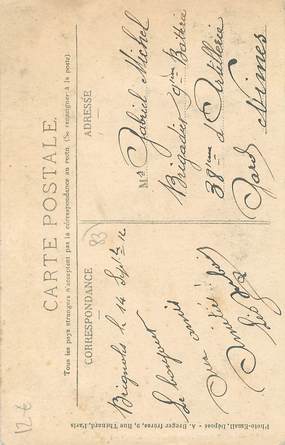 CARTE POSTALE.
Tous les pays étrangers n'acceptent pas la correspondance au recto. (Se renseigner à la poste).
CORRESPONDANCE
83
Brignoles le 14 Septbre 12
Le bonjour
amitiés
ADRESSE
Mr Gabriel Michel
Brigadier 9ème Batterie
38ème d'Artillerie
Nimes
Gard
Photo-Email, Déposé - A. Breger frères, 9, Rue Thénard, Paris
12 €